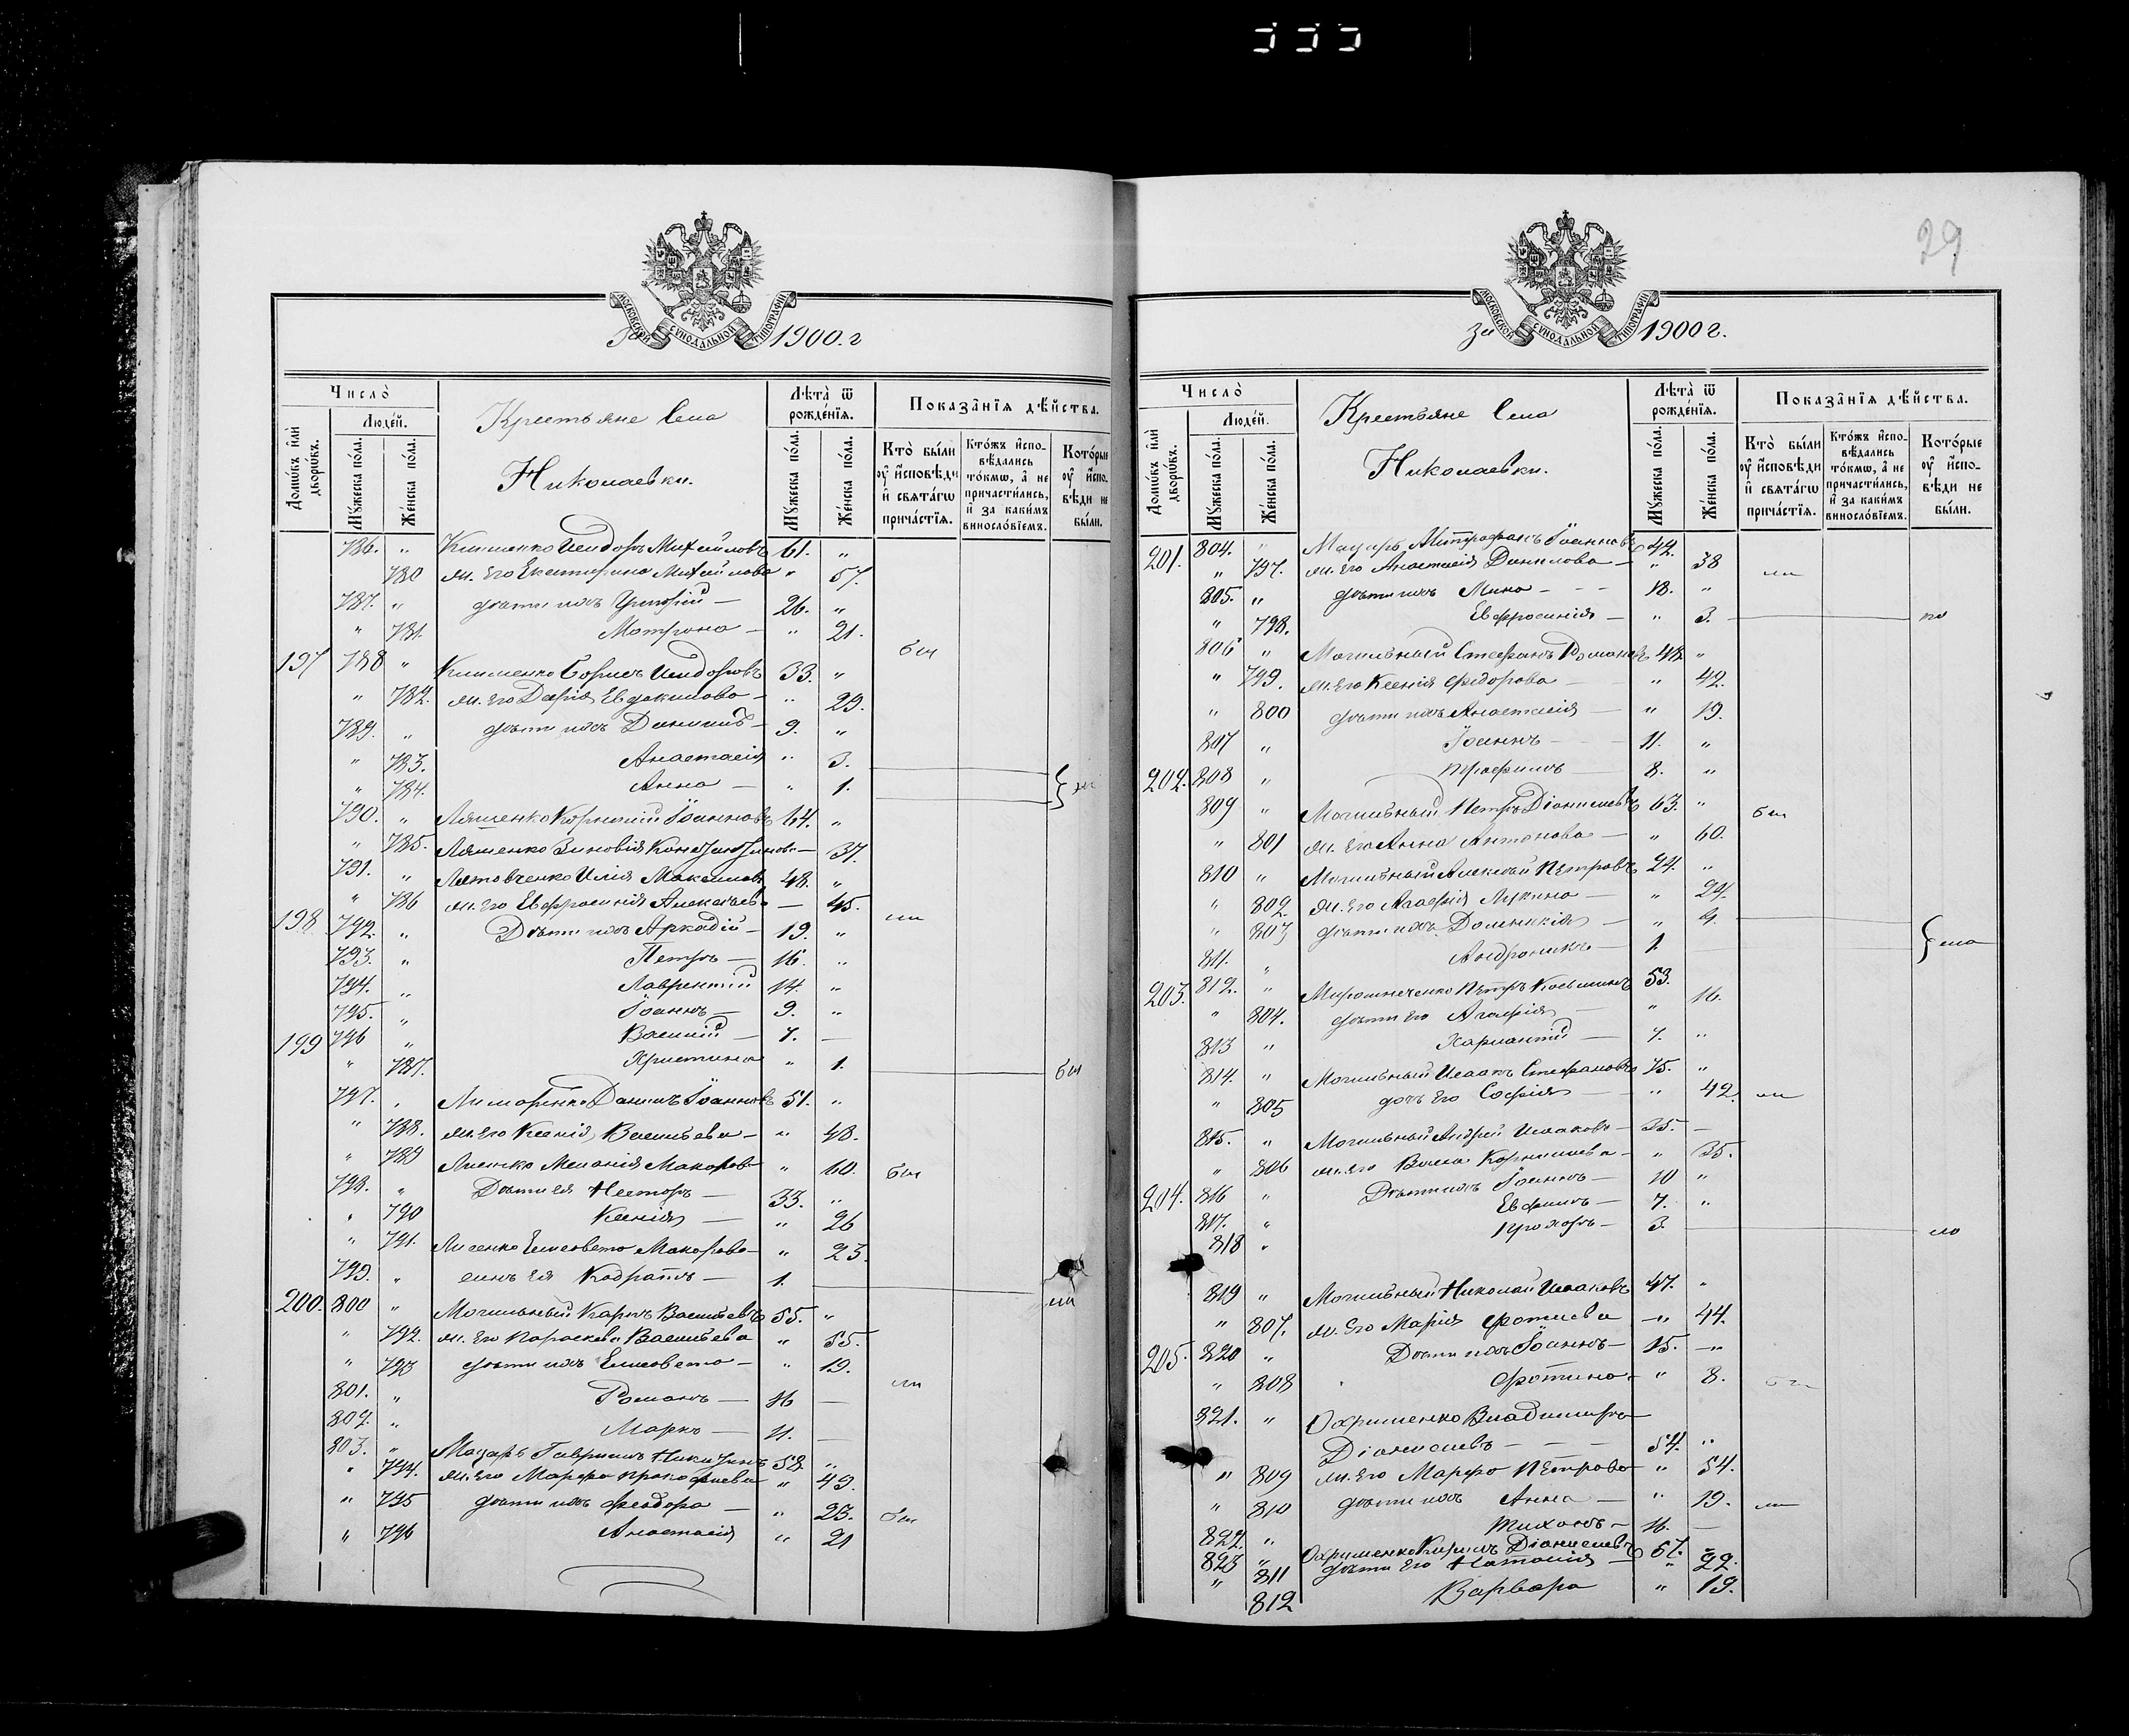 29
МОСКОВСКОЙ СѴНОДАЛЬНОЙ ТИПОГРАФІИ
За 1900. г
Число̀
Людей.
Домѡвъ и҆лѝ дворѡвъ.
Мꙋжеска пола.
Женска пола.
Крестьяне Села
Николаевки.
Лѣта̀ ѿ рожденїѧ.
Мꙋжеска пола.
Женска пола.
Показанїѧ дѣйства.
Кто̀ были ᲂу҆ и҆сповѣди и҆ свѧтагѡ причастїѧ.
Ктожъ и҆сповѣдались токмѡ, а҆ не причастились, и҆ за какимъ винословїемъ.
Которые ᲂу҆ и҆сповѣди не были.
786. " Клименко Исидоръ Михаиловъ 61. "
780 ж. Его Екатерина Михаилова " 57.
787. " дѣти ихъ Григорій — 26. "
" 781. Матрона — " 21.
197 788 " Клименко Борисъ Исидоровъ 33. "
" 782. ж. Его Дарія Евдокимова — " 29.
789. " дѣти ихъ Даниилъ — 9. "
" 783. Анастасія " 3.
" 784. Анна — " 1.
790. " Ляшенко Корнилій Іоанновъ 64. "
" 785. Ляшенко Зиновія Константинова — 37.
791. " Илія Максимовъ 48. "
" 786 ж. Его Евфросинія Алексѣева — 45.
198 792. " Дѣти ихъ Аркадій — 19. "
793. " Петръ — 16. "
794. " Лаврентій 14. "
795. " Іоаннъ — 9. "
199 796 " Василій — 7. —
" 787. Христина " 1.
797. " Даніилъ Іоанновъ 51. "
" 788. ж. Его Ксенія Васильева — " 48.
" 789 Лисенко Меланія Макарова " 60.
798. " Дѣти ея Несторъ — 33. "
" 790 Ксенія — " 26
" 791. Лисенко Елисавета Макарова — " 23
799. " сынъ ея Кодратъ — 1.
200. 800 " Могильный Карпъ Васильевъ 55. "
" 792. ж. Его Параскева Васильева " 55.
" 793 дѣти ихъ Елисавета — " 19.
801. " Романъ — 16 —
802. " Маркъ — 11. —
803. " Мазаръ Гавріилъ Никитинъ 58. "
" 794. ж. Его Марфа Прокофіева " 49.
" 795 дѣти ихъ Феодора — " 23.
" 796 Анастасія " 21
МОСКОВСКОЙ СѴНОДАЛЬНОЙ ТИПОГРАФІИ
за 1900 г.
Число̀
Людей.
Домѡвъ и҆лѝ дворѡвъ.
Мꙋжеска пола.
Женска пола.
Крестьяне Села
Николаевки.
Лѣта̀ ѿ рожденїѧ.
Мꙋжеска пола.
Женска пола.
Показанїѧ дѣйства.
Кто̀ были ᲂу҆ и҆сповѣди и҆ свѧтагѡ причастїѧ.
Ктожъ и҆сповѣдались токмѡ, а҆ не причастились, и҆ за какимъ винословїемъ.
Которые ᲂу҆ и҆сповѣди не были.
201. 804. " Мазаръ Митрофанъ Іоанновъ 42.
" 797. ж. Его Анастасія Данилова — " 38
805. " дѣти ихъ Мина — 18. "
" 798. Евфросинія — " 3.
806 " Могильный Стефанъ Романовъ 48. "
" 799. ж. Его Ксенія Федорова " 42.
" 800 дѣти ихъ Анастасія — " 19.
807 " Іоаннъ — 11. "
202. 808 " Трофимъ 8. "
809 " Могильный Петръ Діонисіевъ 63. "
" 801 ж. Его Анна Антонова — " 60.
810 " Могильный Алексѣй Петровъ 24. "
" 802 ж. Его Агафія Лукина — " 24.
" 803 дѣти ихъ Домникія — " 4.
811. " Андроникъ — 1.
203. 812. " Мирошнеченко Петръ Косьминъ 53.
" 804. дѣти Его Агафія — " 16.
813 " Харлантій — 7. "
814. " Могильный Исаакъ Стефановъ 75. "
" 805 дочь Его Софія — " 42.
815. " Могильный Андрей Исааковъ — 35. —
" 806 ж. Его Васса Корнилиева — " 35.
204. 816 " Дѣти ихъ Іоаннъ — 10 "
817. " Евфимъ — 7. "
818 " Прохоръ — 3.
819 " Могильный Николай Исааковъ 47. "
" 807. ж. Его Марія Фотиева — " 44.
205. 820 " Дѣти ихъ Іоаннъ — 15. — "
" 808 Фотина — " 8.
821. " Охрименко Владиміръ
Діонисіевъ — 54. "
" 809 ж. Его Марфа Петрова " 54.
" 810 дѣти ихъ Анна — " 19.
822. " Тихонъ — 16. —
823 " Охрименко Кирилъ Діонисіевъ 57. "
" 811 дѣти Его Наталія — " 22.
812 Варвара " 19.